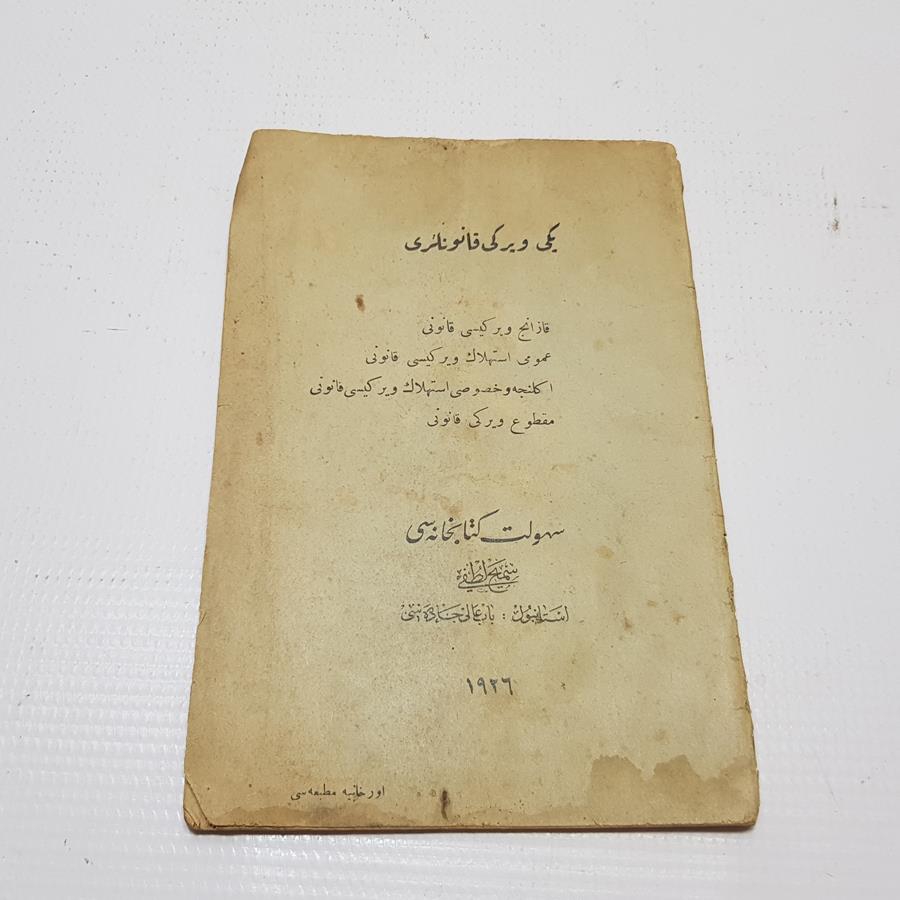 یكی ویركی قانونلری
قازانج ویركیسی قانونی
عمومی استهلاك ویركیسی قانونی
اكلنجه و خصوصی استهلاك ویركیسی قانونی
مقطوع ویركی قانونی
سهولت كتابخانه‌سی
سمیح لطفی
استانبول : باب عالی جاده‌سی
١٩٢٦
اورخانیه مطبعه‌سی